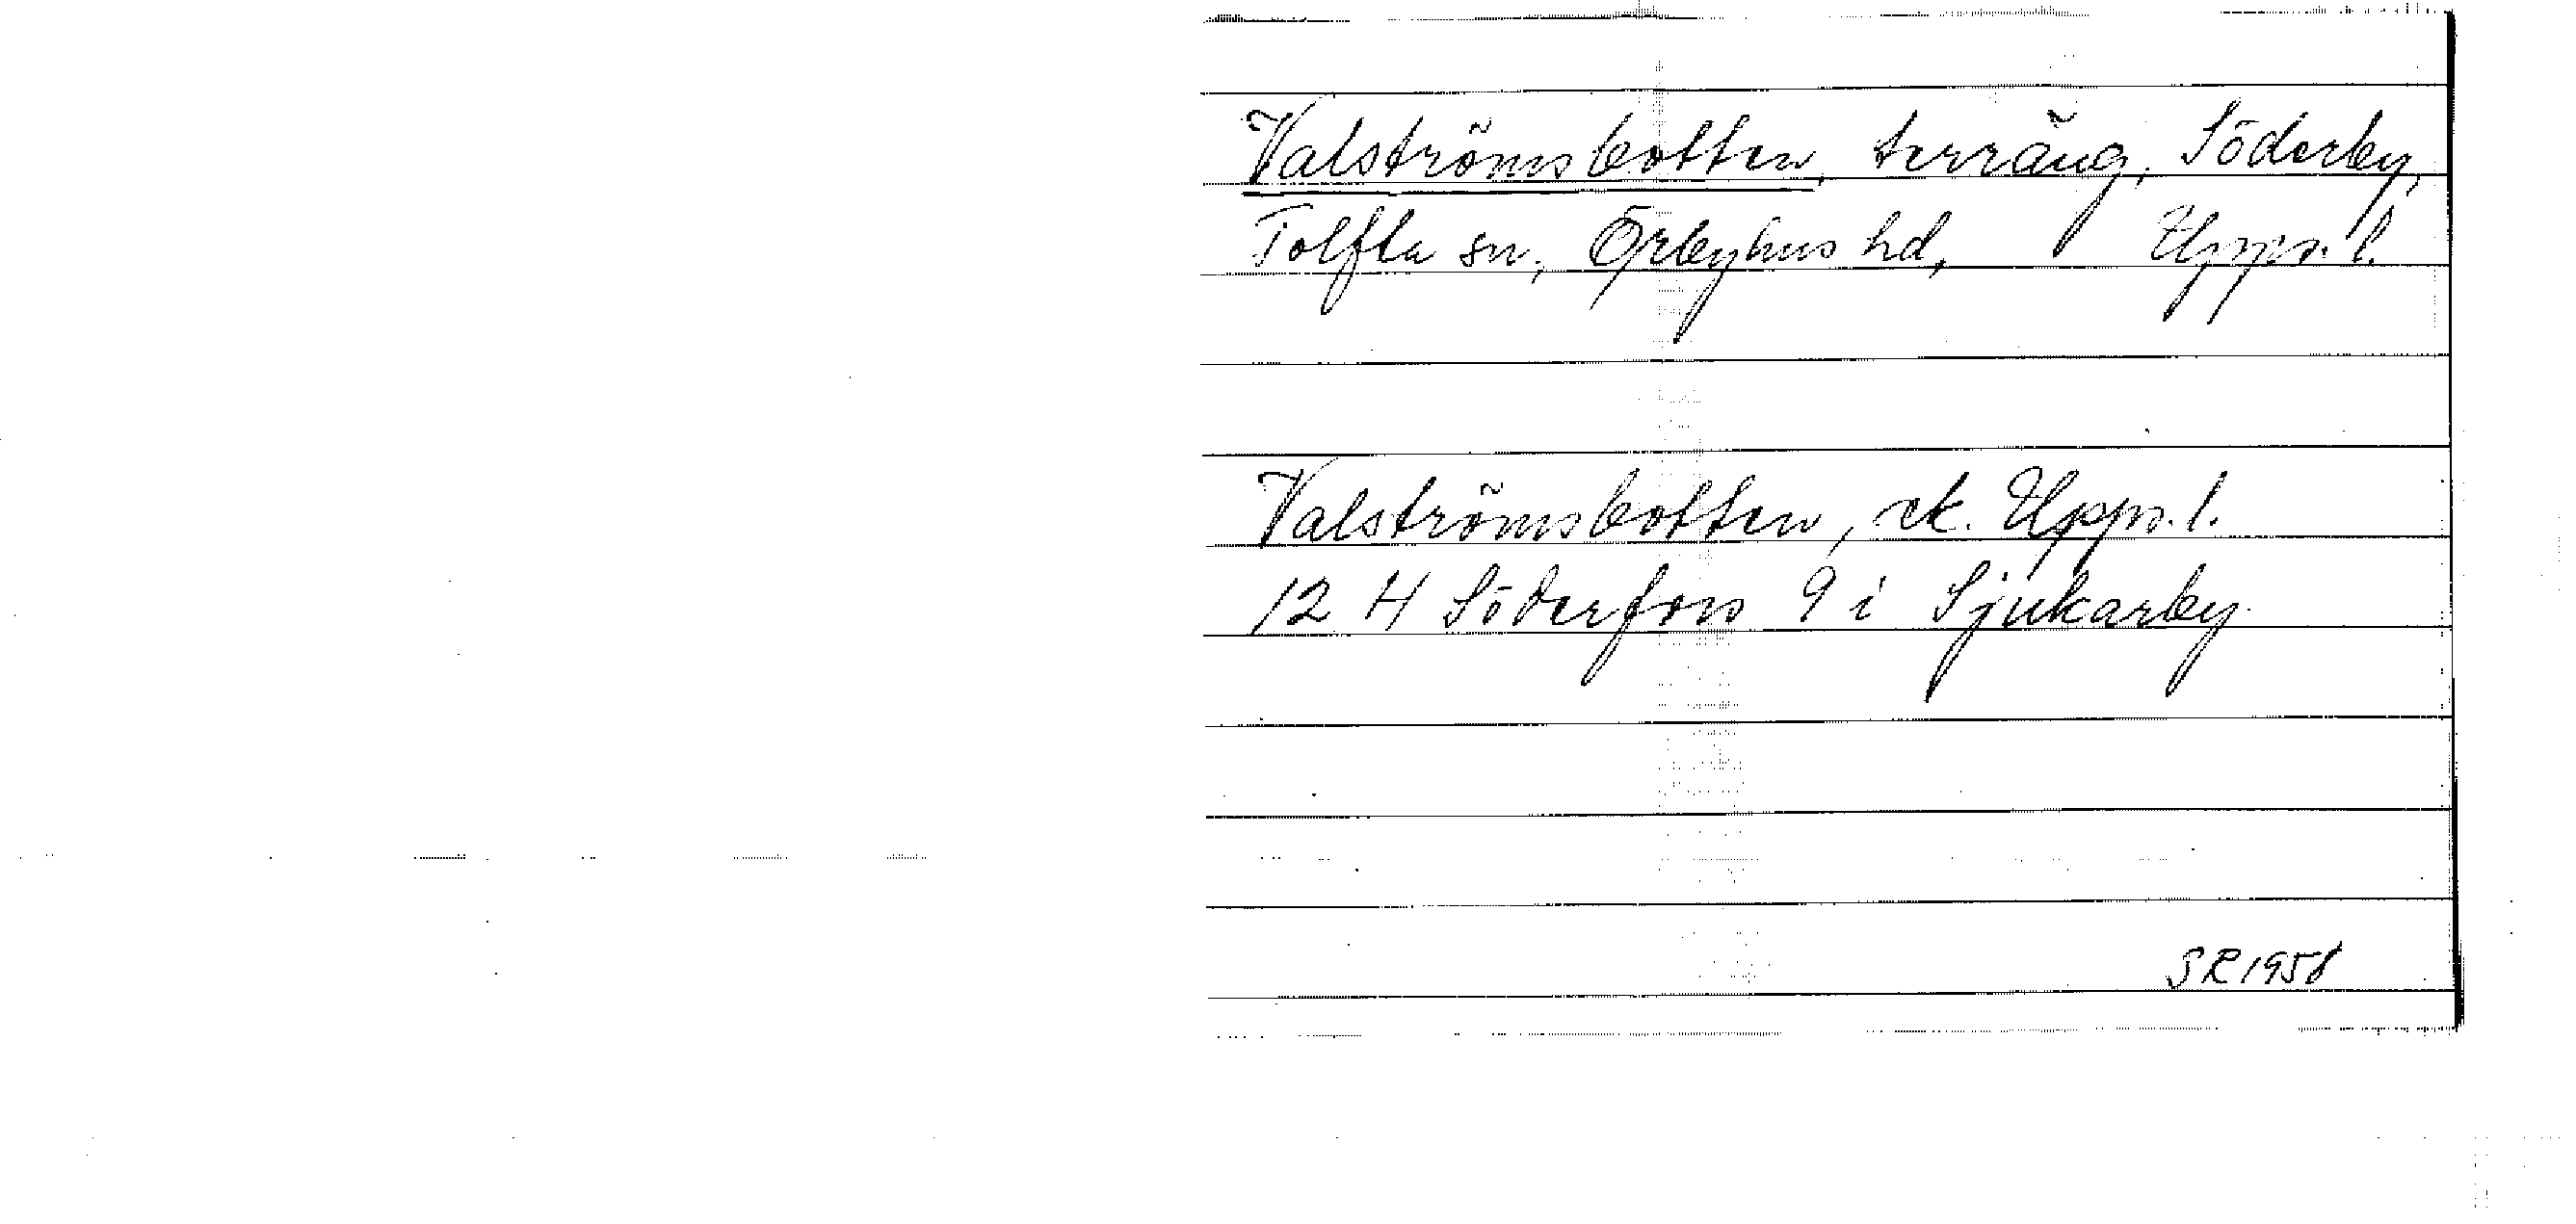 Valströmsbotten, terräng, Söderby,
Tolfta sn, Örbyhus hd, Upps. l.
Valströmsbotten, ek. Upps. l.
12 H Söderfors 9 i Sjukarby
SR 1958